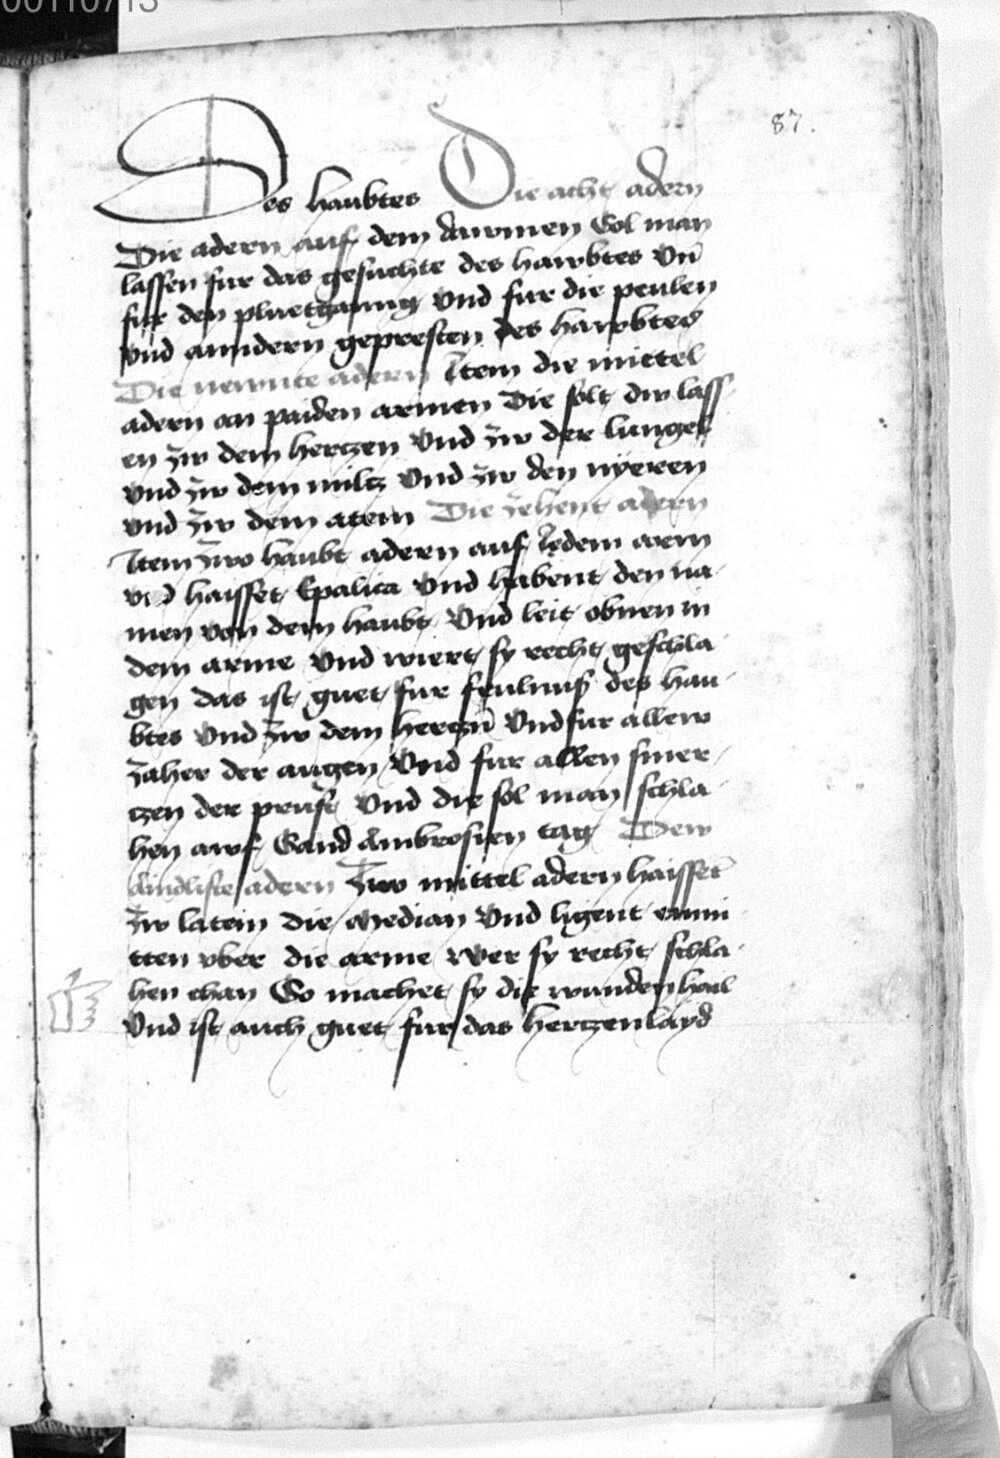 00110713
87.
Des haubtes Die acht adern
Die adern auf dem daumen Sol man
lassen fur das gesuchte des hawbtes Vn̄
fur den pluetganng Vnd fur die peulen
Vnd anndern gepresten des hawbtes
Die newnte adern Item die mittel
adern an paiden armen Die solt dw lass
en zw dem hertzen Vnd zw der lungel
Vnd zw dem miltz Vnd zw den nyeren
Vnd zw dem atem Die zehent adern
Item zwo haubt adern auf Iedem arm
vnd haisset Epalica Vnd habent den na
men von dem haubt Vnd leit obnen in
dem arme Vnd wiert sy recht geschla
gen das ist guet fur feulnuß des hau
btes Vnd zw dem hertzn̄ Vnd fur allew
zaher der augen Vnd fur allen smer
tzen der prust Vnd die sol man schla
hen awf Sand Ambrosien tag Dew
Aindlifte adern Zwo mittel adern haisset
zw latein die Median Vnd ligent enmi
tten vber die arme Wer sy recht schla
hen chan So machet sy die wunden hail
Vnd ist auch guet fur das hertzenlayd